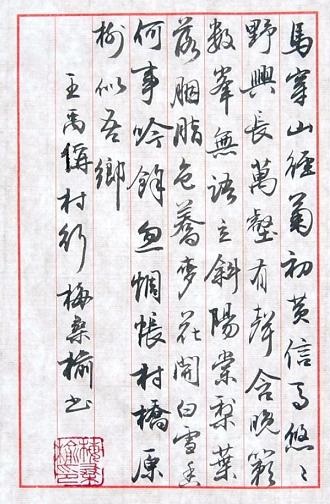 馬穿山徑菊初黃信馬悠〻
野興長萬壑有聲含晚籟
數峯無語立斜陽棠梨葉
落胭脂色蕎麥花開白雪香
何事吟餘忽惆悵村橋原
樹似吾鄉
王禹偁村行 梅桑榆书
梅桑榆印